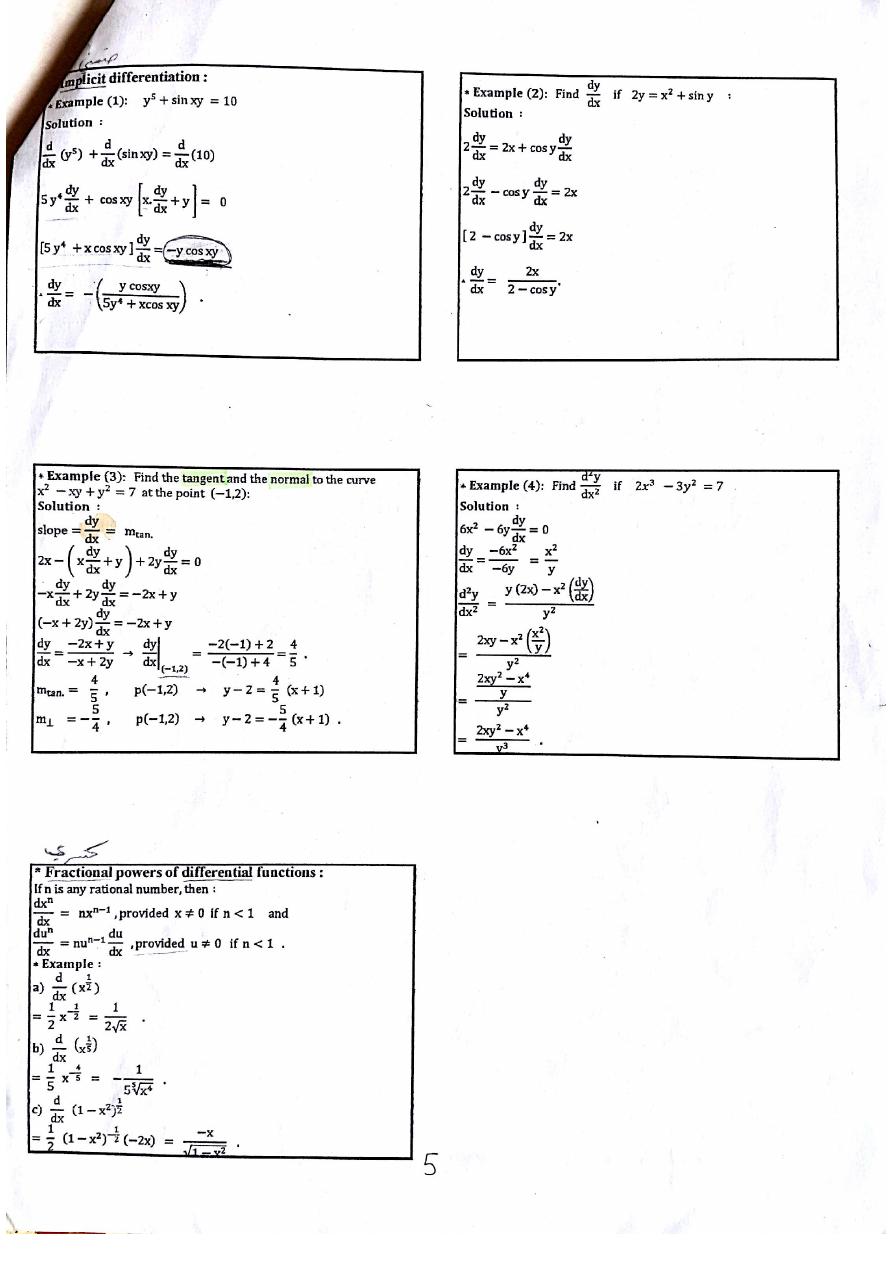 ضمني
Implicit differentiation :
* Example (1): y⁵ + sin xy = 10
Solution :
d/dx (y⁵) + d/dx (sin xy) = d/dx (10)
5y⁴ dy/dx + cos xy [x. dy/dx + y] = 0
[5y⁴ + x cos xy] dy/dx = -y cos xy
∴ dy/dx = -(y cosxy / 5y⁴ + xcos xy) .
* Example (2): Find dy/dx if 2y = x² + sin y :
Solution :
2 dy/dx = 2x + cos y dy/dx
2 dy/dx - cos y dy/dx = 2x
[2 - cos y] dy/dx = 2x
∴ dy/dx = 2x / 2 - cos y .
* Example (3): Find the tangent and the normal to the curve
x² - xy + y² = 7 at the point (-1,2):
Solution :
slope = dy/dx = m_tan.
2x - (x dy/dx + y) + 2y dy/dx = 0
-x dy/dx + 2y dy/dx = -2x + y
(-x + 2y) dy/dx = -2x + y
dy/dx = -2x + y / -x + 2y → dy/dx|(-1,2) = -2(-1) + 2 / -(-1) + 4 = 4/5 .
m_tan. = 4/5 , p(-1,2) → y - 2 = 4/5 (x + 1)
m⊥ = -5/4 , p(-1,2) → y - 2 = -5/4 (x + 1) .
* Example (4): Find d²y/dx² if 2x³ - 3y² = 7
Solution :
6x² - 6y dy/dx = 0
dy/dx = -6x²/-6y = x²/y
d²y/dx² = y (2x) - x² (dy/dx) / y²
= 2xy - x² (x²/y) / y²
= (2xy² - x⁴ / y) / y²
= 2xy² - x⁴ / y³ .
كسري
* Fractional powers of differential functions :
If n is any rational number, then :
dxⁿ/dx = nxⁿ⁻¹ , provided x ≠ 0 if n < 1 and
duⁿ/dx = nuⁿ⁻¹ du/dx , provided u ≠ 0 if n < 1 .
* Example :
a) d/dx (x^(1/2))
= 1/2 x^(-1/2) = 1/2√x .
b) d/dx (x^(1/5))
= 1/5 x^(-4/5) = - 1/5⁵√x⁴ .
c) d/dx (1 - x²)^(1/2)
= 1/2 (1 - x²)^(-1/2) (-2x) = -x/√1 - x² .
5